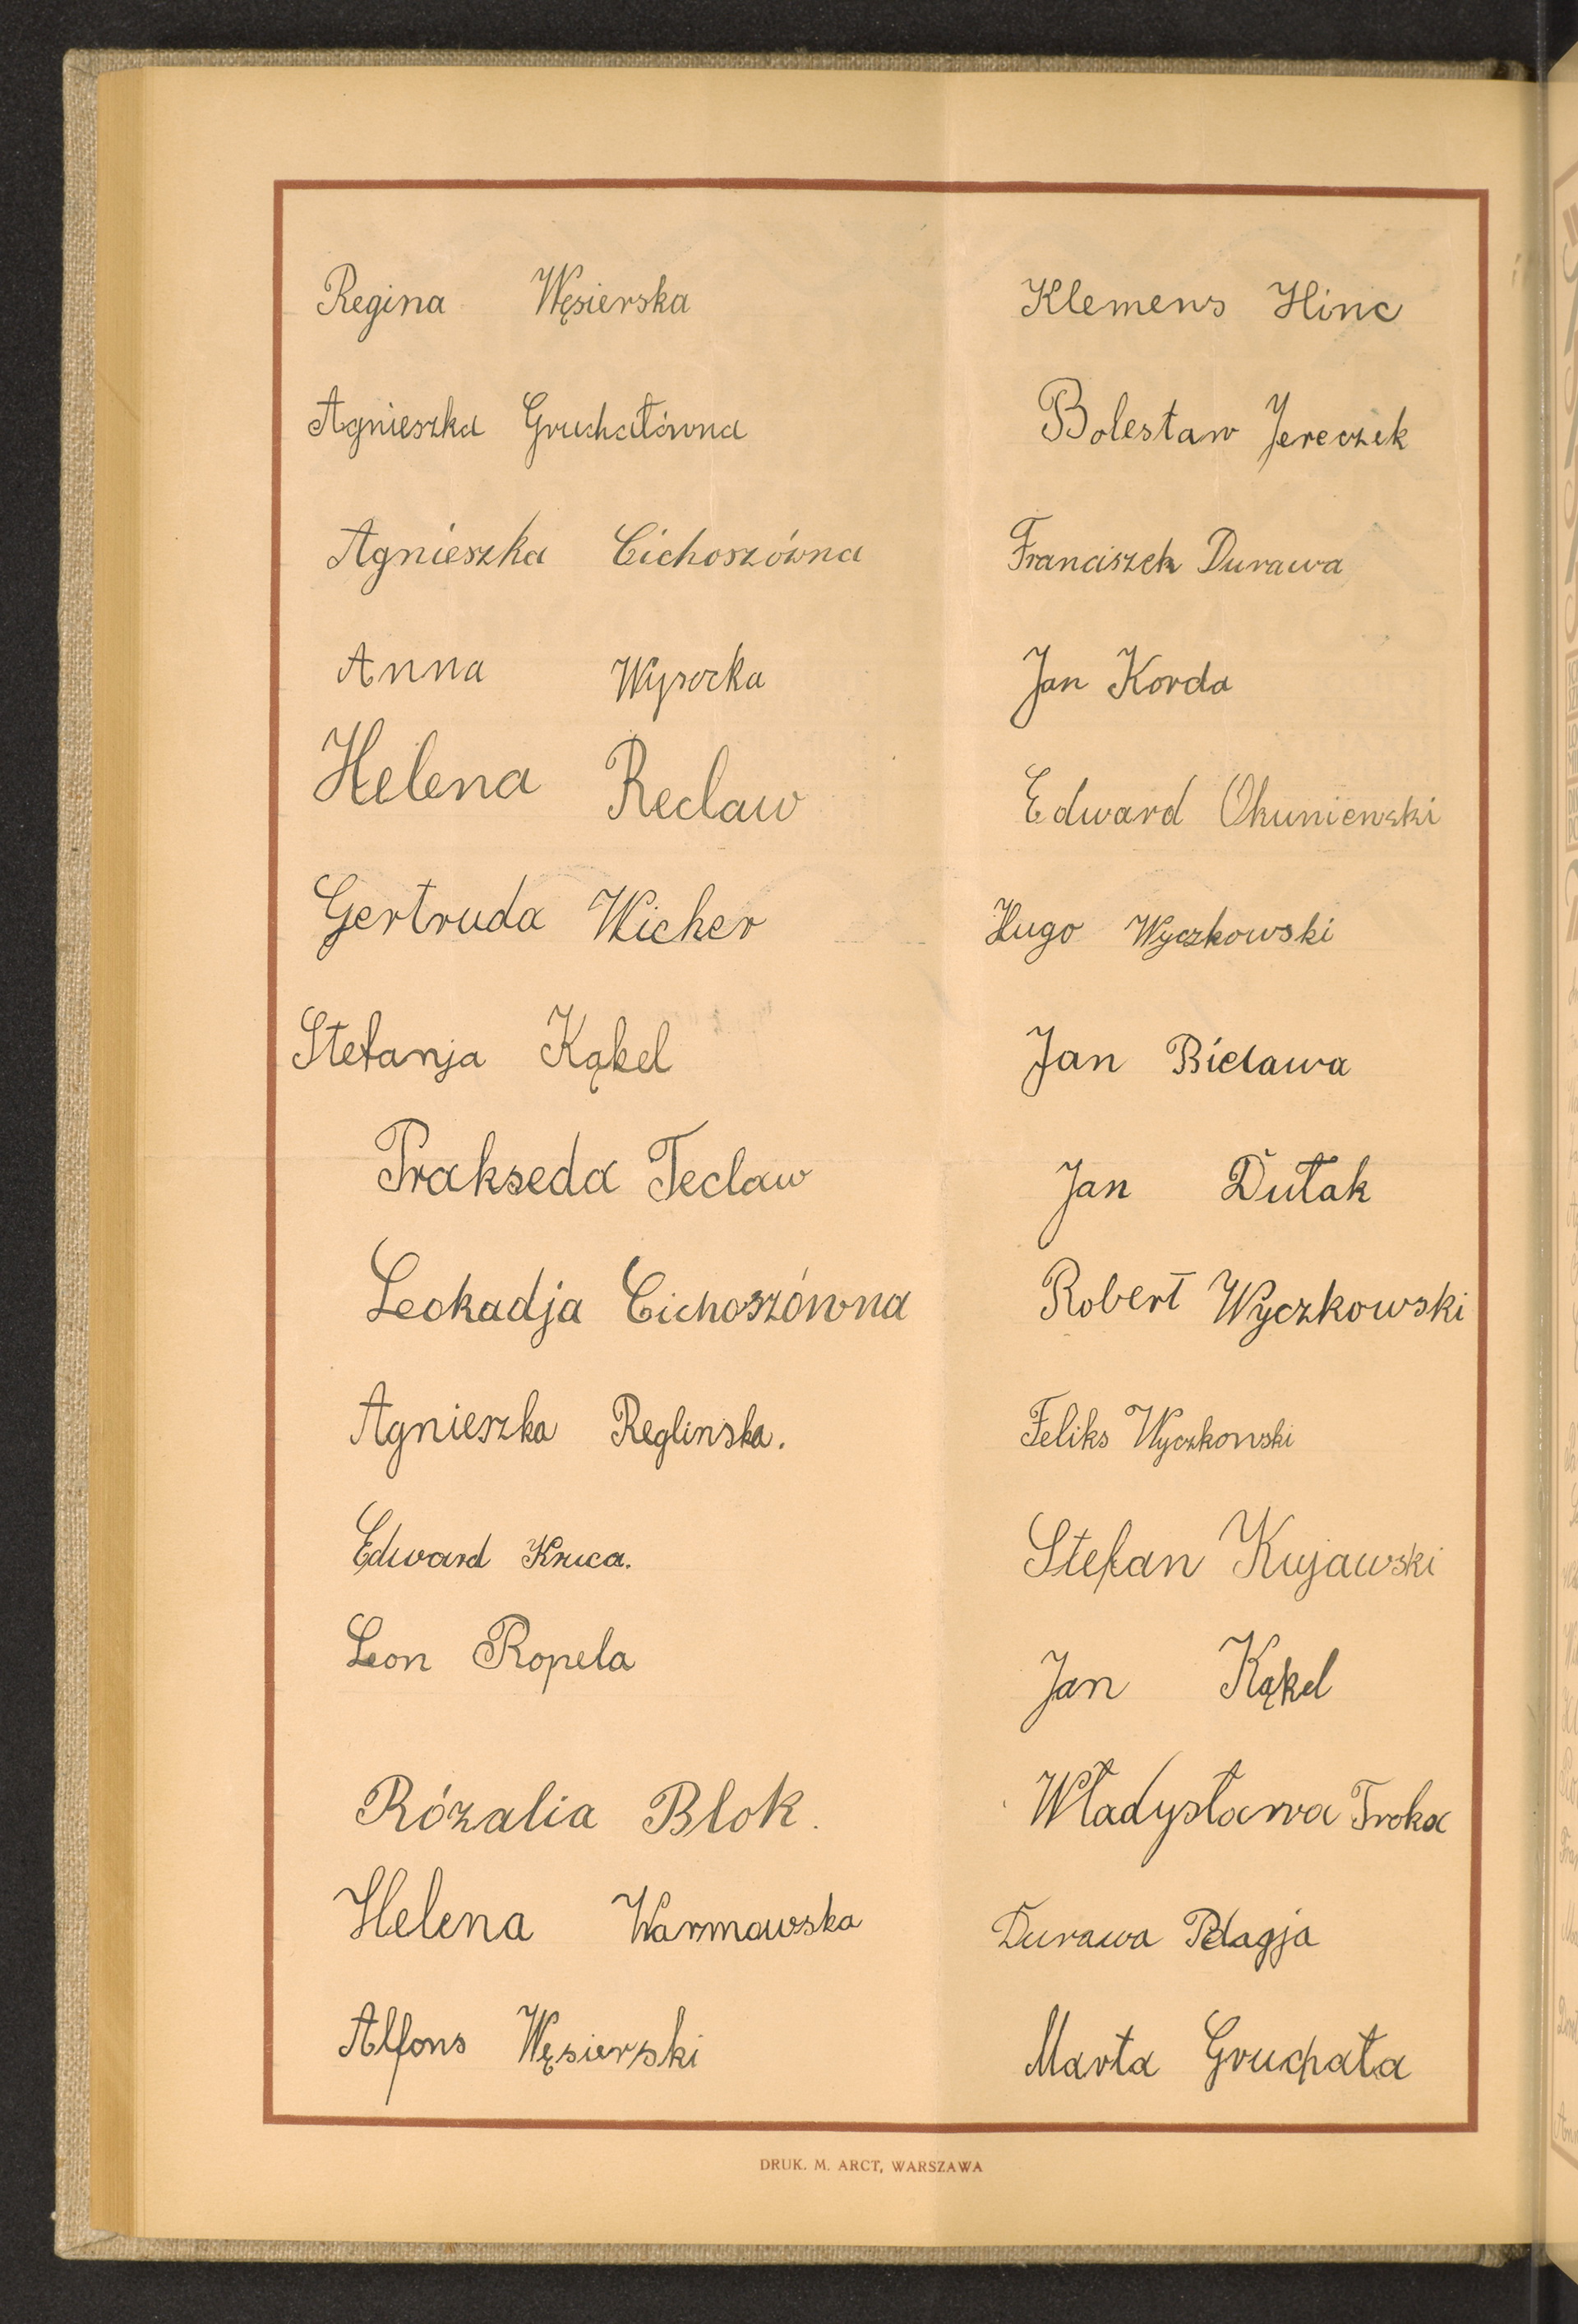 Regina Węsierska
Agnieszka Gruchałówna
Agnieszka Cichoszówna
Anna Wysocka
Helena Reclaw
Gertruda Wicher
Stefanja Kąkel
Prakseda Teclaw
Leokadja Cichoszówna
Agnieszka Reglinska.
Edward Kruca.
Leon Ropela
Rózalia Blok.
Helena Warmowska
Alfons Węsierski
Klemens Hinc
Bolesław Jereczek
Franciszek Durawa
Jan Korda
Edward Okuniewski
Hugo Wyczkowski
Jan Bielawa
Jan Dułak
Robert Wyczkowski
Feliks Wyczkowski
Stefan Kujawski
Jan Kąkel
Władysława Troka
Durawa Pelagja
Marta Gruchała
DRUK. M. ARCT, WARSZAWA